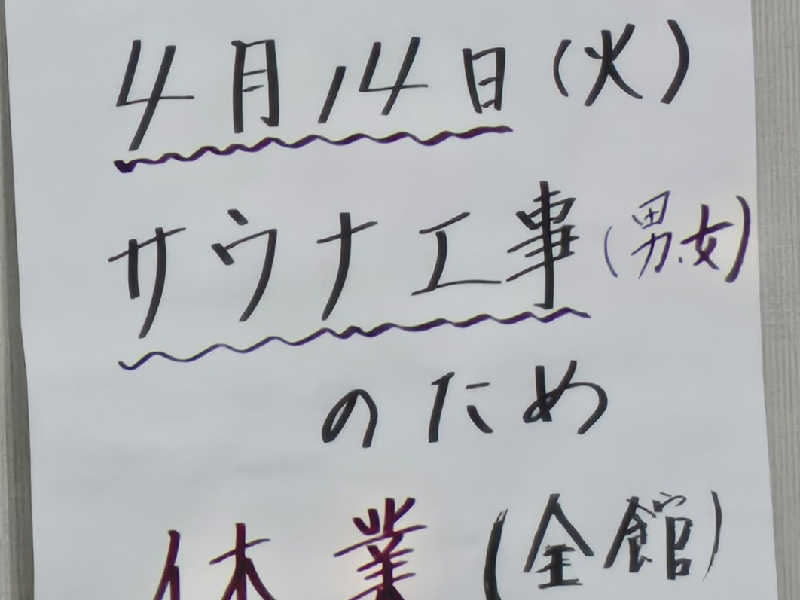 4月14日(火)
サウナ工事(男、女)
のため
休業(全館)